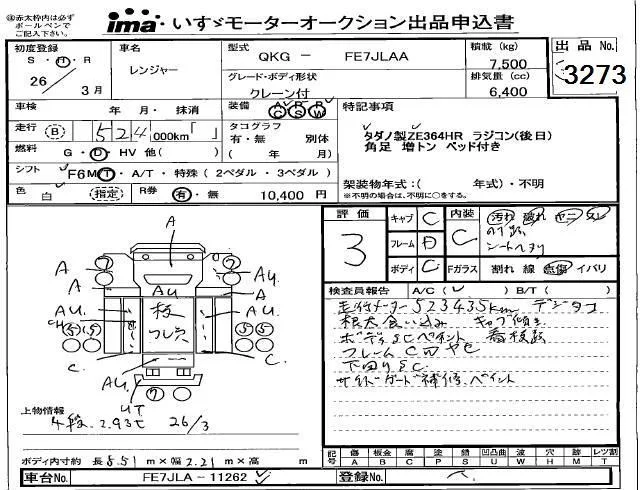 ④赤太枠内は必ず
ボールペンで
ご記入下さい。
ima いすゞモーターオークション出品申込書
初度登録
S・H・R
26/3月
車名
レンジャー
型式
QKG － FE7JLAA
積載 (kg)
7,500
排気量 (cc)
6,400
出品 No.
3273
グレード・ボディ形状
クレーン付
車検 年 月・ 抹消
装備 AC PS RW
特記事項
タダノ製ZE364HR ラジコン(後日)
角足 増トン ベッド付き
走行 B 524,000km「 」
タコグラフ
有・無 別体
( 年 )
燃料 G・D・HV 他( )
シフト F6 MT・A/T・特殊(2ペダル・3ペダル)
架装物年式:( 年式)・不明
※不明の場合は、不明に○をする。
色 白 (指定) R券 有・無 10,400 円
評価
3
キャブ C
フレーム D
ボディ C
内装 C
汚れ 破れ
シートヘタリ
Fガラス 割れ 線 点傷 イバリ
検査員報告 A/C( ✓ ) B/T( )
走行メーター523435km デジタコ
根太食い込み キャブ傾き
ボディSCペイント 看板跡
フレームC凹ヤセ
下回りSC.
サイドガード補修.ペイント
A
A
A
AU
AU.
AU
AU.
板
フレ穴
C.
C.
AU.
UT
上物情報
4段. 2.93t 26/3
ボディ内寸約 長 5.51 m×幅 2.21 m×高 m
記号 傷 板金 凹 塗 錆 凹凸曲 波 穴 跡 レツ割
A B C P S U W H M T
車台No. FE7JLA－11262
登録No.